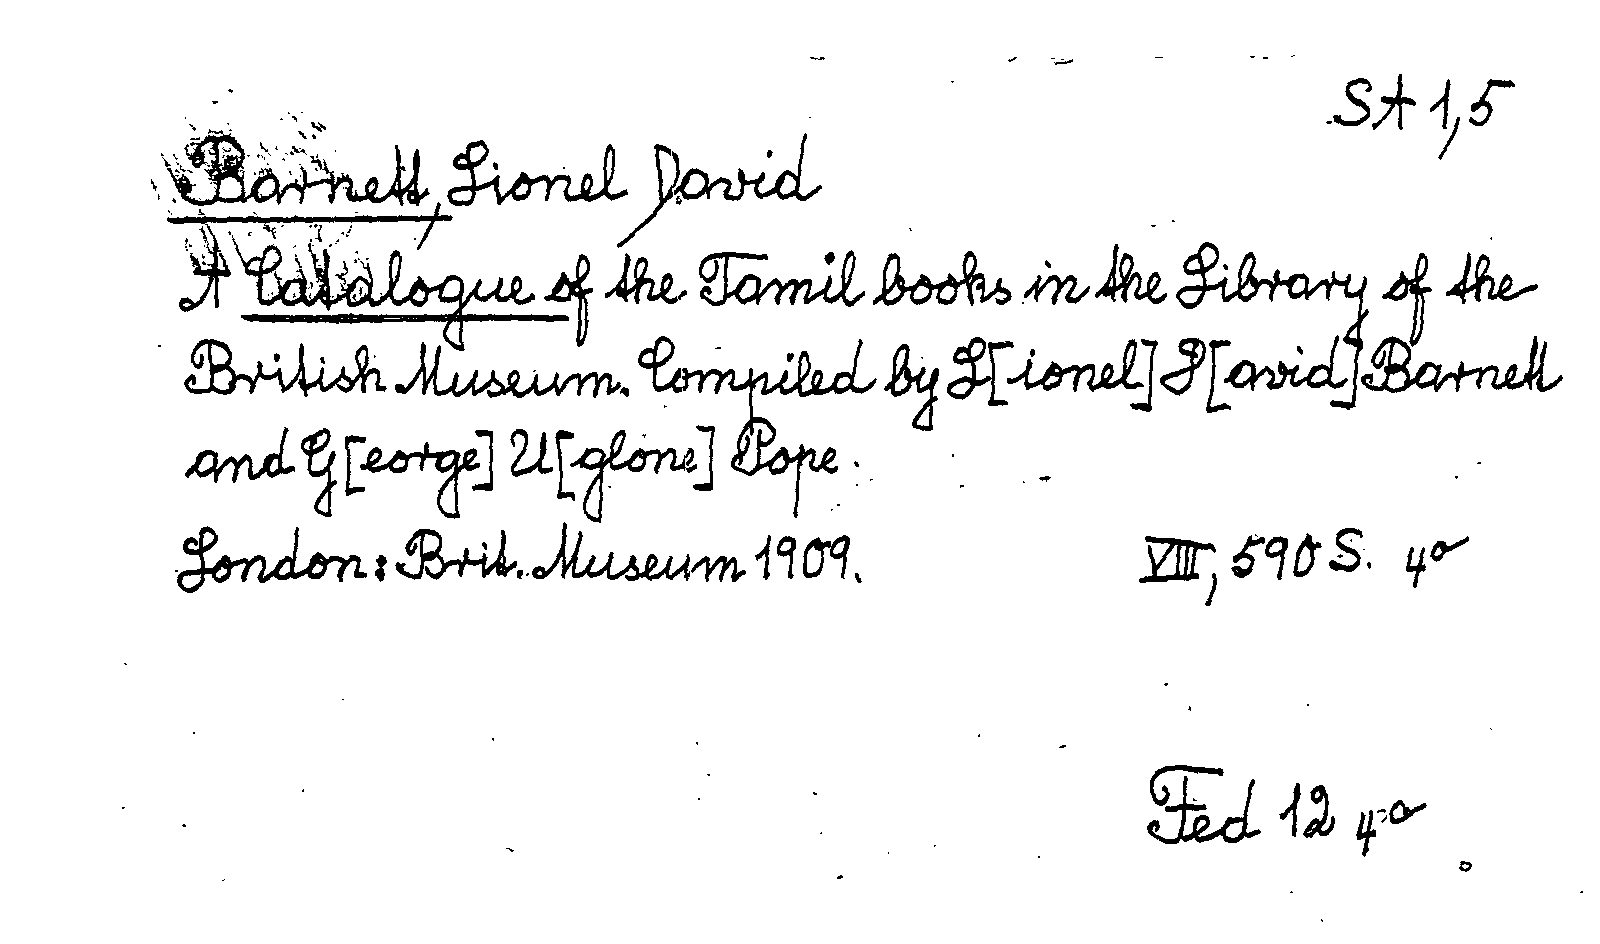 SA 1,5
Barnett, Lionel David
A Catalogue of the Tamil books in the Library of the
British Museum. Compiled by L[ionel] D[avid] Barnett
and G[eorge] U[glone] Pope.
London: Brit. Museum 1909. VIII, 590 S. 4°
Fed 12 4°